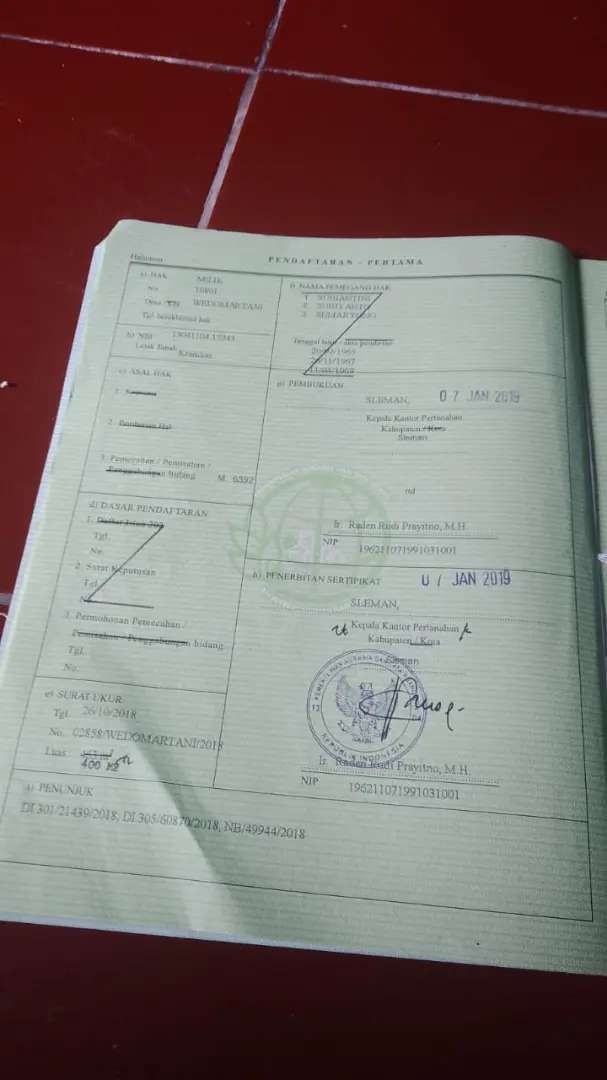 Halaman
PENDAFTARAN - PERTAMA
a) HAK MILIK
No.
Desa / WEDOMARTANI
Tgl. berakhirnya hak
b) NIB
Letak Tanah
Krandon
c) ASAL HAK
1. Konversi
2. Pemberian Hak
3. Pemecahan / Pemisahan /
Penggabungan bidang M. 6392
d) DASAR PENDAFTARAN
1. Daftar Isian 202
Tgl.
No.
2. Surat Keputusan
Tgl.
No.
3. Permohonan Pemecahan /
Pemisahan / Penggabungan bidang
Tgl.
No.
e) SURAT UKUR
Tgl. 26/10/2018
No. 02858/WEDOMARTANI/2018
Luas
400 M2
f) NAMA PEMEGANG HAK
1.
2.
3.
Tanggal lahir / akta pendirian
g) PEMBUKUAN
SLEMAN, 07 JAN 2019
Kepala Kantor Pertanahan
Kabupaten / Kota
Sleman
ttd
Ir. Raden Rudi Prayitno, M.H.
NIP 196211071991031001
h) PENERBITAN SERTIPIKAT 07 JAN 2019
SLEMAN,
Kepala Kantor Pertanahan
Kabupaten / Kota
Sleman
REPUBLIK INDONESIA
Ir. Raden Rudi Prayitno, M.H.
NIP 196211071991031001
i) PENUNJUK
DI 301/21439/2018, DI 305/60870/2018, NB/49944/2018